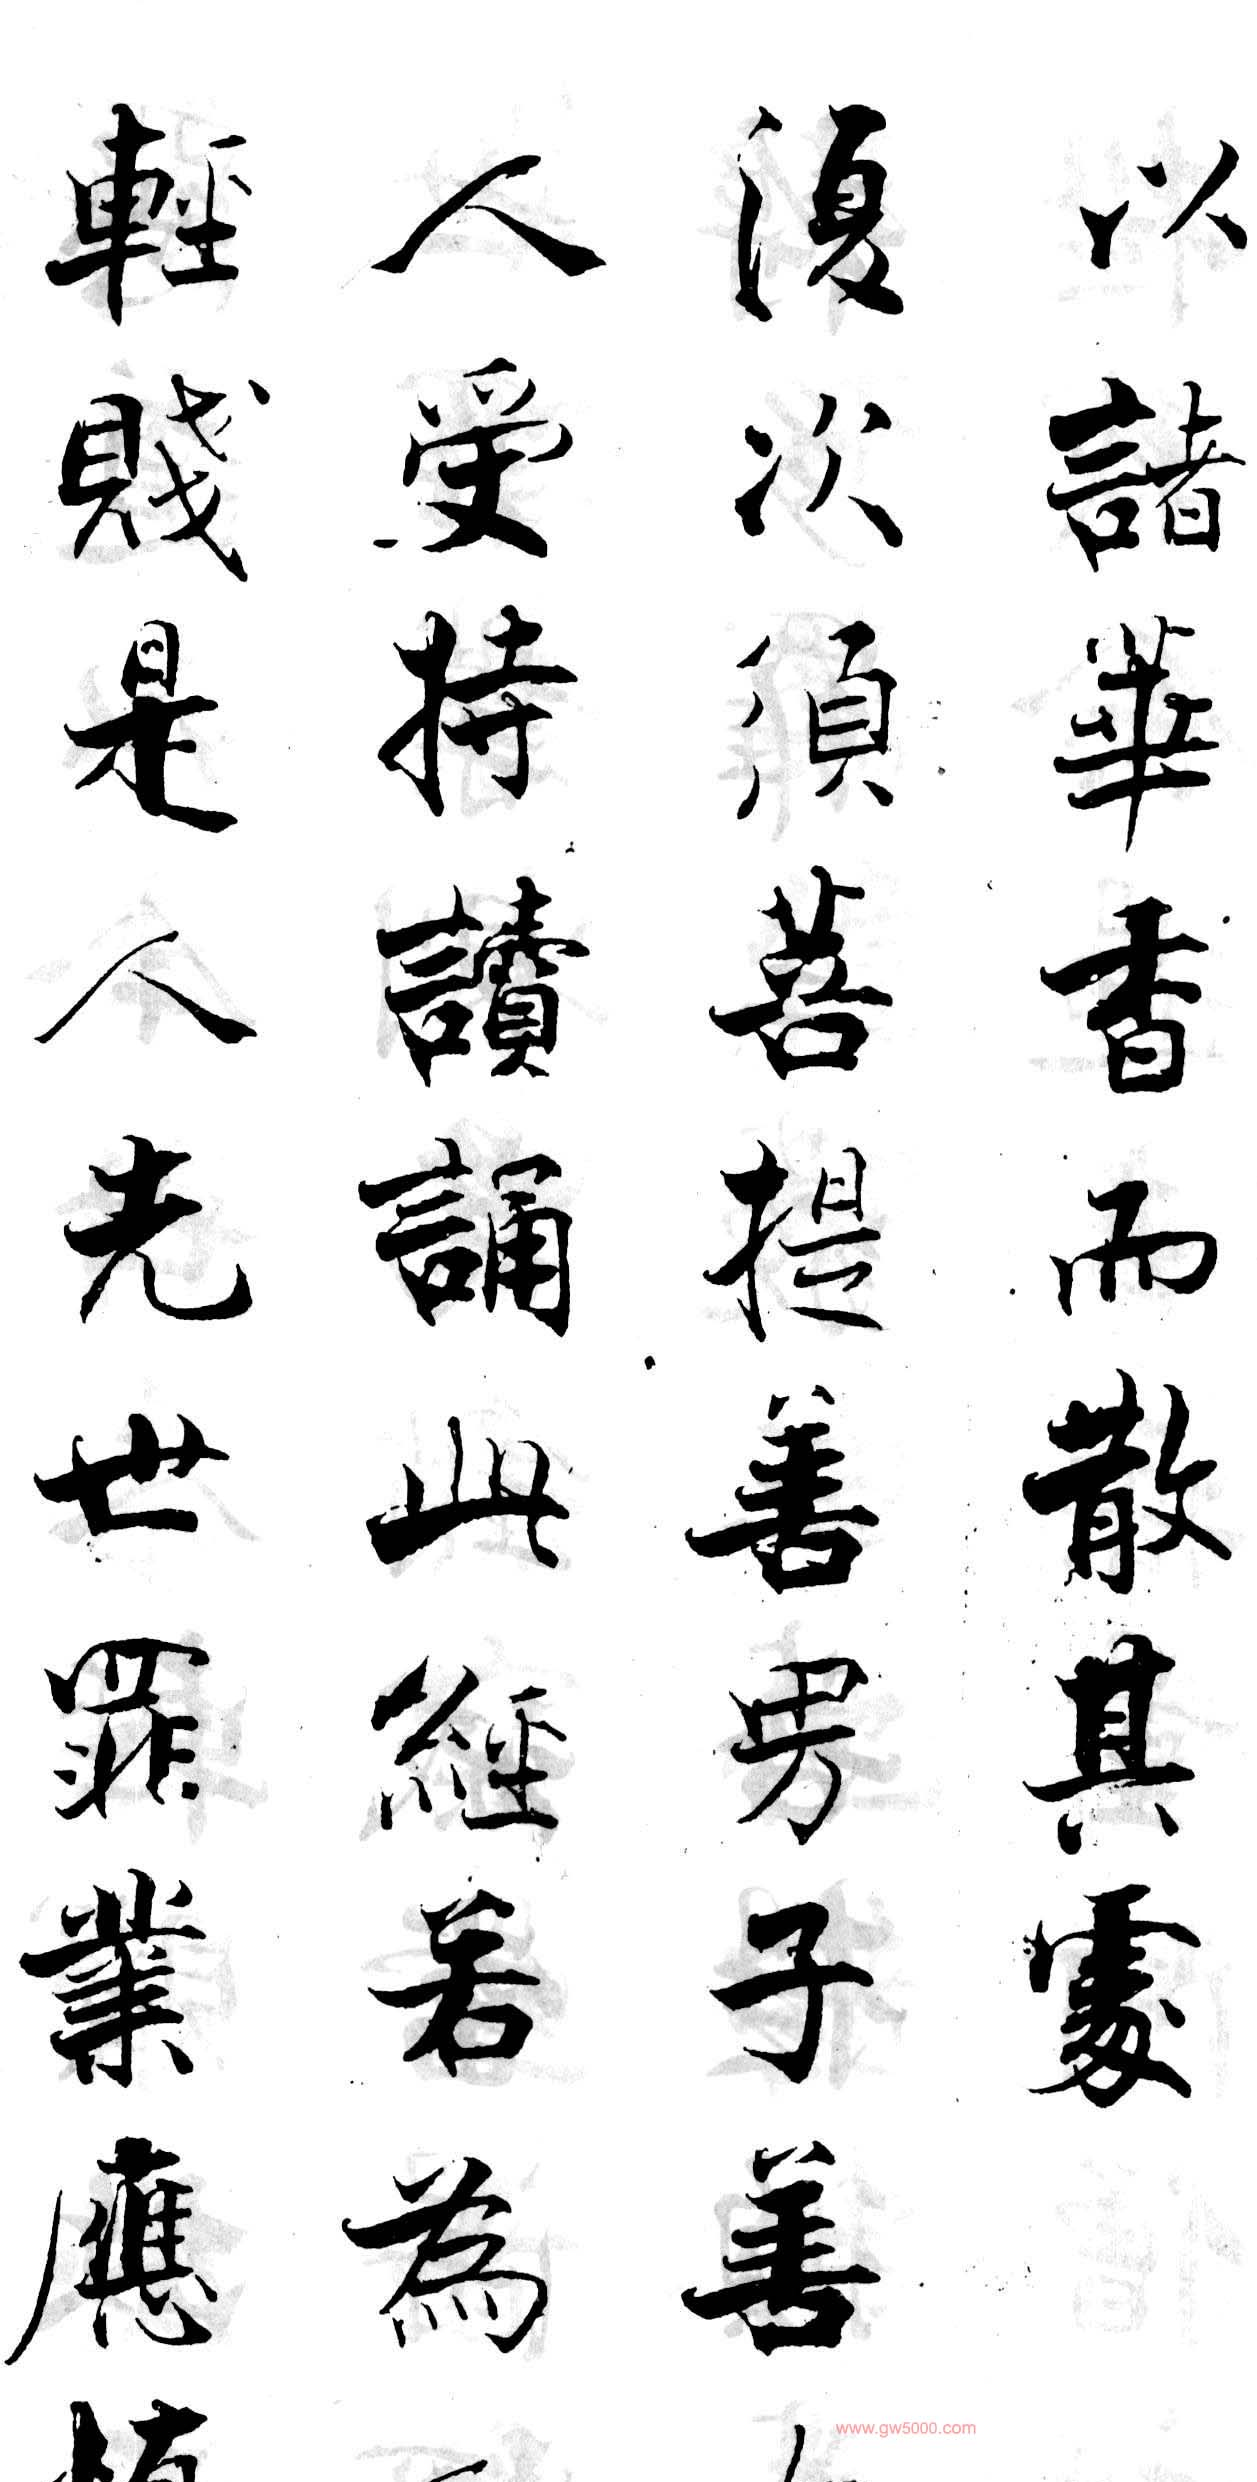 以諸華香而散其處
復次須菩提善男子善
人受持讀誦此經若為
輕賤是人先世罪業應
www.gw5000.com